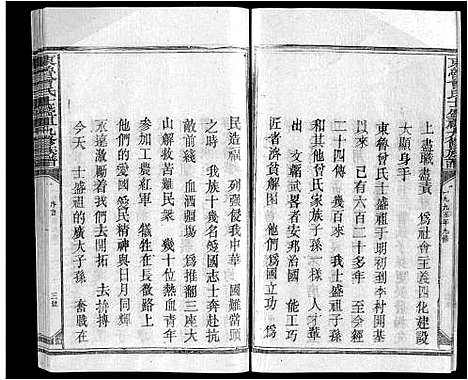 上 盡職盡責 爲社会主義四化建設
大顯身手
東魯曾氏士盛祖于明初到李村開基
以來 已有六百二十多年 至今經
二十四傳 幾百來 我士盛祖子孫
和其他曾氏家族子孫一様 人才輩
出 文韜武署者安邦治國 能工巧
匠者濟貧解困
他們 爲國立功 爲
民造福 列强侵我中華 國難當頭
之時 我族十幾名爱國志士奔赴抗
敵前線 血洒疆塲 爲推翻三座大
山解救苦難民衆 幾十位熱血青年
参加工農紅軍 犧牲在長徵路上
他們的爱國爱民精神與日月同輝
永遠激勵我們去開拓 去拚摶
今天 士盛祖的廣大子孫 奮戰在
序言
三號